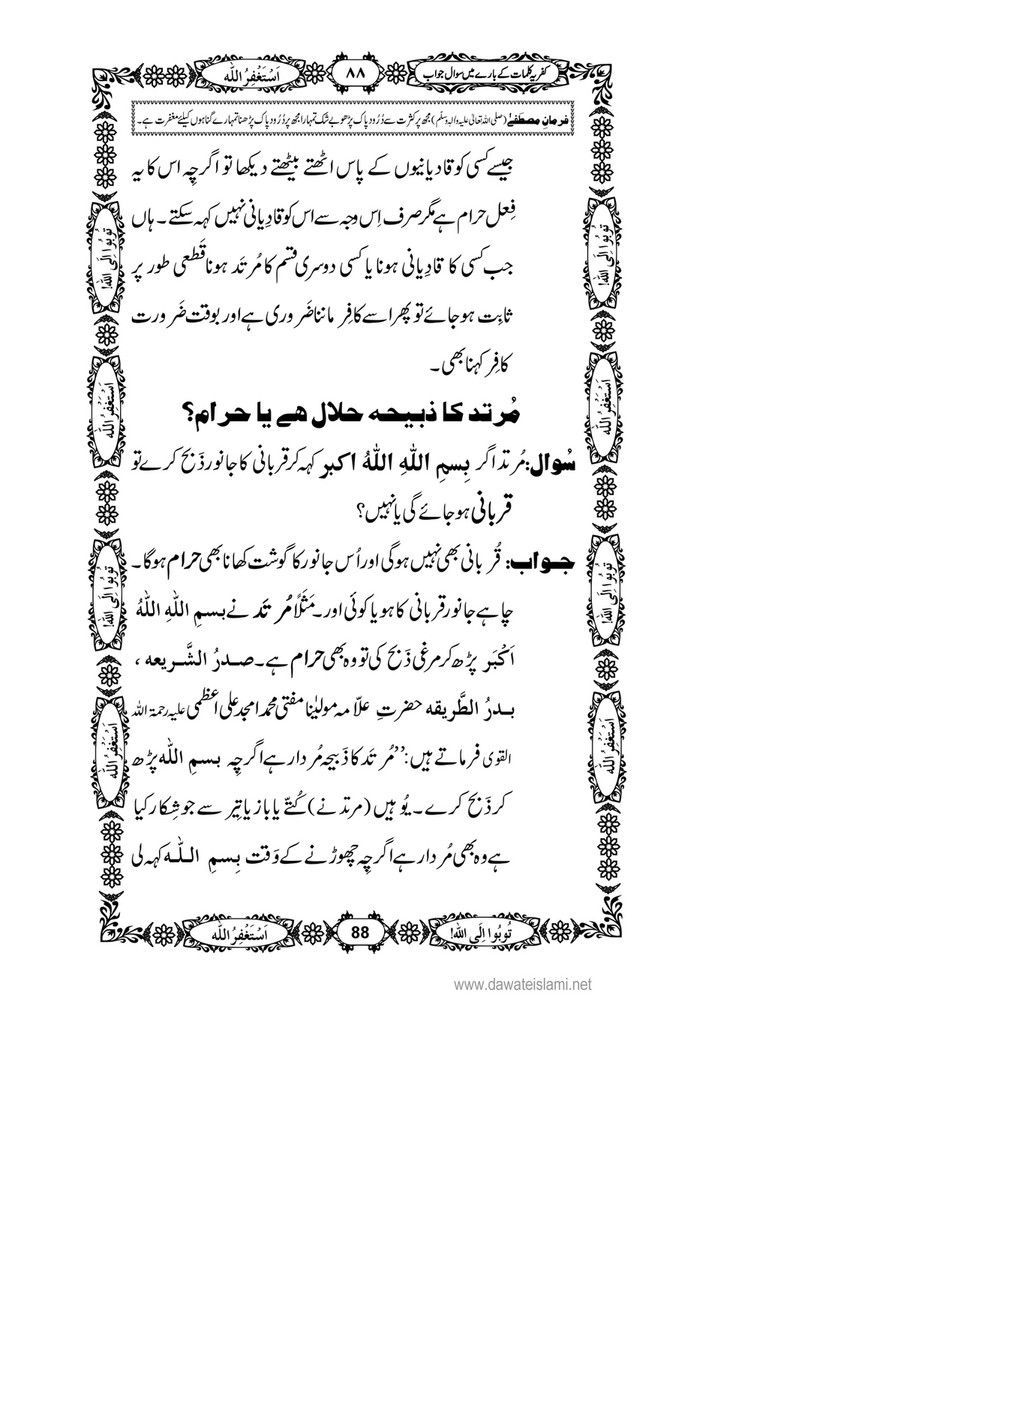 کفریہ کلمات کے بارے میں سوال جواب
۸۸
اَسْتَغْفِرُ اللّٰه
فرمانِ مصطَفٰے (صلی اللہ تعالیٰ علیہ والہٖ وسلّم) مجھ پر کثرت سے دُرُود پاک پڑھو بے شک تمہارا مجھ پر دُرُود پاک پڑھنا تمہارے گناہوں کیلئے مغفرت ہے۔
جیسے کسی کو قادیانیوں کے پاس اٹھتے بیٹھتے دیکھا تو اگرچِہ اس کا یہ
فِعل حرام ہے مگر صرف اِس وجہ سے اس کو قادِیانی نہیں کہہ سکتے۔ ہاں
جب کسی کا قادِیانی ہونا یا کسی دوسری قسم کا مُرتَد ہونا قَطعی طور پر
ثابِت ہو جائے تو پھر اسے کافِر ماننا ضَروری ہے اور بوقت ضَرورت
کافِر کہنا بھی۔
مُرتد کا ذبیحہ حلال ہے یا حرام؟
سُوال: مُرتد اگر بِسمِ اللّٰهِ اللّٰهُ اکبر کہہ کر قربانی کا جانور ذَبح کرے تو
قربانی ہو جائے گی یا نہیں؟
جواب: قُربانی بھی نہیں ہوگی اور اُس جانور کا گوشت کھانا بھی حرام ہوگا۔
چاہے جانور قربانی کا ہو یا کوئی اور۔ مَثَلاً مُرتَد نے بسمِ اللّٰهِ اللّٰهُ
اَکْبَر پڑھ کر مرغی ذَبح کی تو وہ بھی حرام ہے۔ صدرُ الشَّریعه ،
بدرُ الطَّریقه حضرتِ علّامہ مولیٰنا مفتی محمد امجد علی اعظمی علیہ رحمۃ اللہ
القوی فرماتے ہیں: ”مُرتَد کا ذَبیحہ مُردار ہے اگرچِہ بسمِ اللّٰه پڑھ
کر ذَبح کرے۔ یُوہیں (مرتد نے) کُتّے یا باز یا تِیر سے جو شِکار کیا
ہے وہ بھی مُردار ہے اگرچِہ چھوڑنے کے وَقت بِسمِ اللّٰه کہہ لی
تُوبُوا اِلَی اللّٰه!
اَسْتَغْفِرُ اللّٰه
تُوبُوا اِلَی اللّٰه!
اَسْتَغْفِرُ اللّٰه
تُوبُوا اِلَی اللّٰه!
اَسْتَغْفِرُ اللّٰه
تُوبُوا اِلَی اللّٰه!
اَسْتَغْفِرُ اللّٰه
تُوبُوا اِلَی اللّٰه!
88
اَسْتَغْفِرُ اللّٰه
www.dawateislami.net